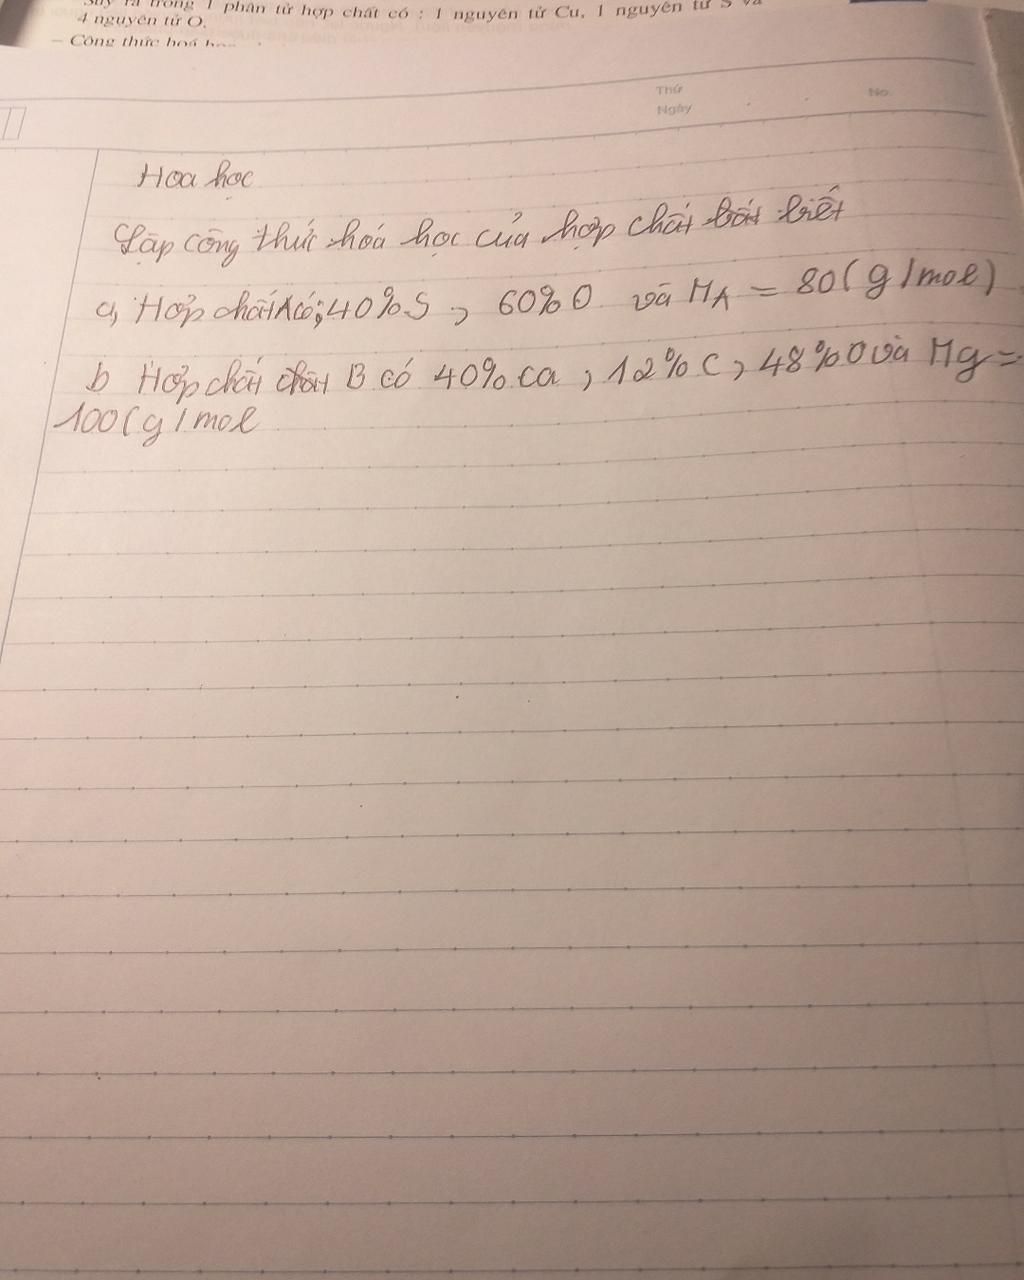 Suy ra trong 1 phân tử hợp chất có : 1 nguyên tử Cu, 1 nguyên tử S và
4 nguyên tử O.
– Công thức hoá
Thứ
Ngày
No.
Hoa học
Lập công thức hoá học của hợp chất biết
a, Hợp chất A có; 40% S , 60% O và MA = 80 ( g / mol )
b Hợp chất chất B có 40% ca , 12% C , 48% O và Mg =
100 ( g / mol